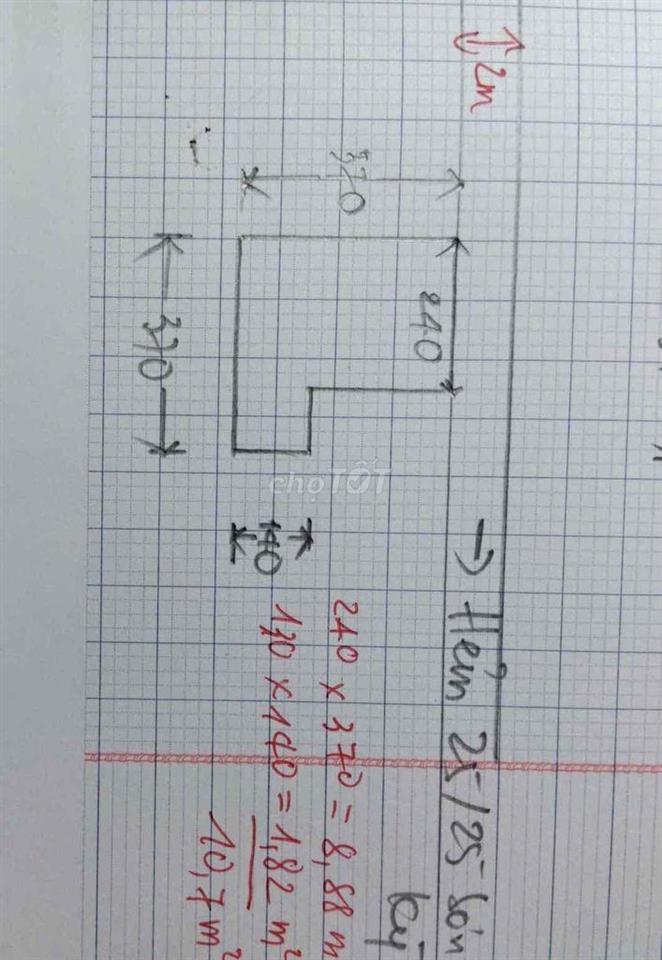 2m
370
240
370
140
→ Hẻm 25/25 Sơn
Kỳ
240 x 370 = 8,88 m
130 x 140 = 1,82 m²
10,7 m²
chợTỐT